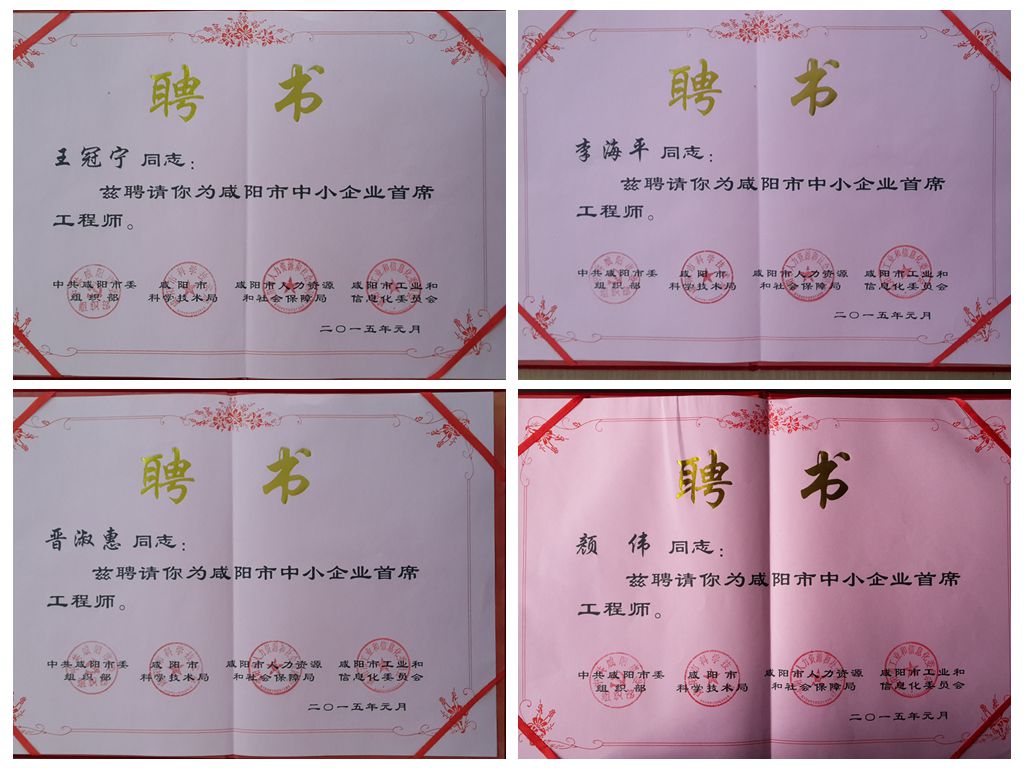 聘 书
王冠宁 同志：
兹聘请你为咸阳市中小企业首席
工程师。
中共咸阳市委 咸阳市 咸阳市人力资源 咸阳市工业和
组织部 科学技术局 和社会保障局 信息化委员会
二〇一五年元月
聘 书
李海平 同志：
兹聘请你为咸阳市中小企业首席
工程师。
中共咸阳市委 咸阳市 咸阳市人力资源 咸阳市工业和
组织部 科学技术局 和社会保障局 信息化委员会
二〇一五年元月
聘 书
晋淑惠 同志：
兹聘请你为咸阳市中小企业首席
工程师。
中共咸阳市委 咸阳市 咸阳市人力资源 咸阳市工业和
组织部 科学技术局 和社会保障局 信息化委员会
二〇一五年元月
聘 书
颜 伟 同志：
兹聘请你为咸阳市中小企业首席
工程师。
中共咸阳市委 咸阳市 咸阳市人力资源 咸阳市工业和
组织部 科学技术局 和社会保障局 信息化委员会
二〇一五年元月